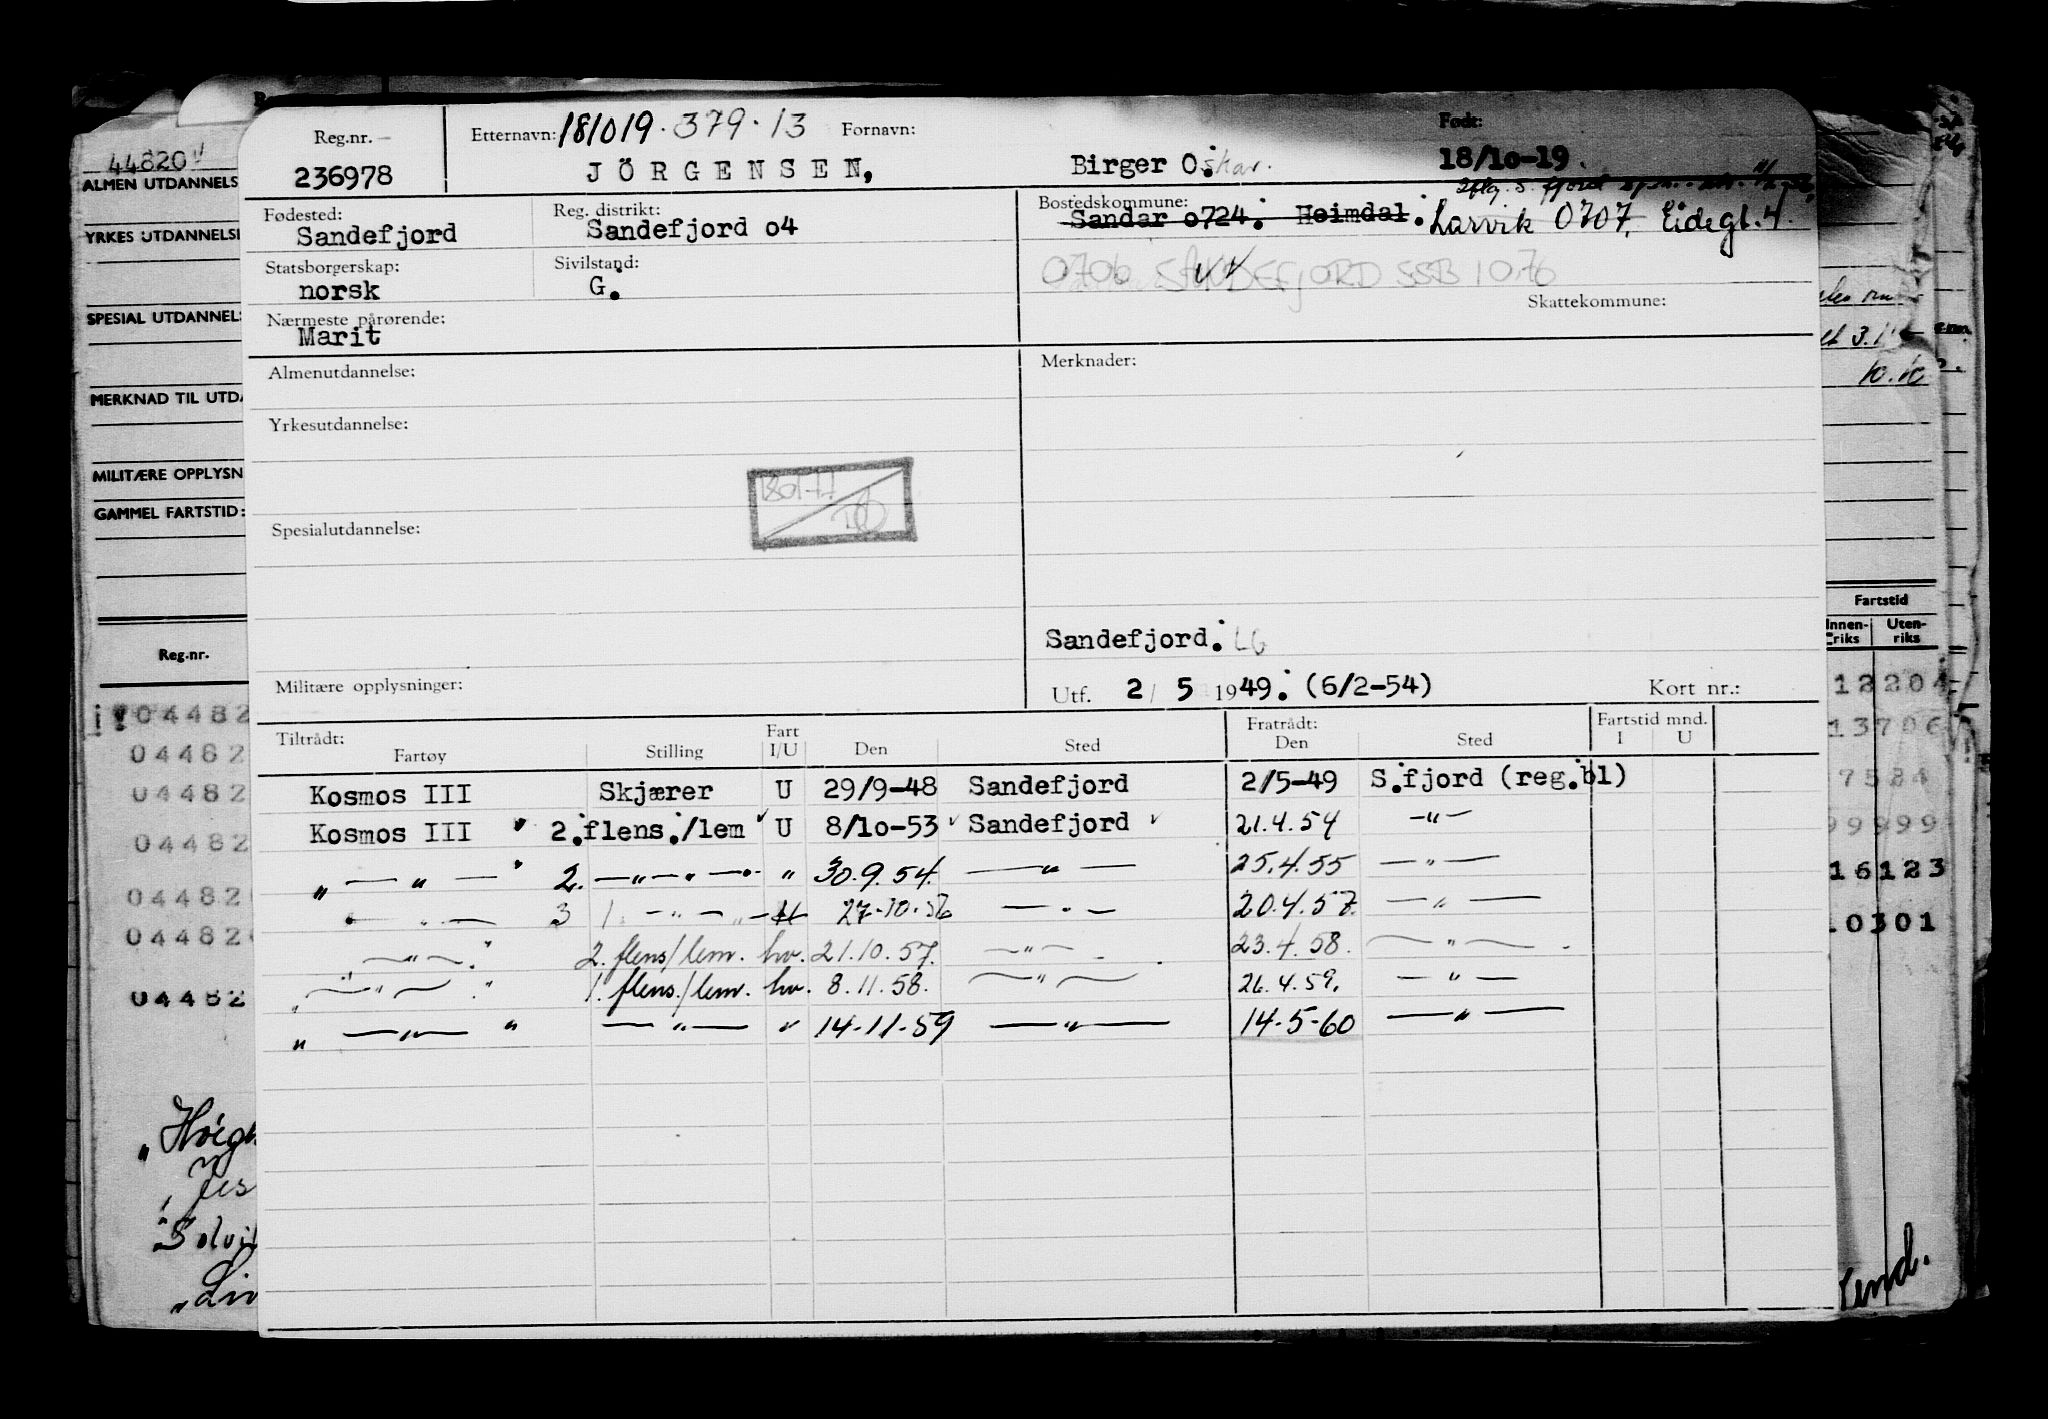 Reg.nr. 236978
Etternavn: 181019.379.13 JÖRGENSEN,
Fornavn: Birger Oskar.
Født: 18/10-19.
Fødested: Sandefjord
Reg. distrikt: Sandefjord o4
Bostedskommune: Sandar o724. Heimdal. Larvik 0707, Eidegt. 4.
0706 SANDEFJORD SSB 1076
Statsborgerskap: norsk
Sivilstand: G.
Skattekommune:
Nærmeste pårørende: Marit
Almenutdannelse:
Merknader:
Yrkesutdannelse:
Spesialutdannelse:
Sandefjord. LG
Militære opplysninger:
Utf. 2/5 1949. (6/2-54)
Kort nr.:
Tiltrådt: Fartøy Stilling Fart I/U Den Sted Fratrådt: Den Sted Fartstid mnd. I U
Kosmos III Skjærer U 29/9-48 Sandefjord 2/5-49 S.fjord (reg.bl)
Kosmos III 2.flens./lem U 8/10-53 Sandefjord 21.4.54 —"—
" — " — 2. —"—"— " 30.9.54. — " — 25.4.55 — " —
— " — 27-10-56 — " — 20.4.57. — " —
— " — " 2. flens/lem. hv. 21.10.57. — " — 23.4.58. — " —
" — " — " 1. flens./lem. hv. 8.11.58. — " — 26.4.59. — " —
" — " — " — " — " 14-11-59 — " — 14-5-60 — " —
44820
ALMEN UTDANNELS
YRKES UTDANNELS
SPESIAL UTDANNEL
MERKNAD TIL UTDA
MILITÆRE OPPLYSN
GAMMEL FARTSTID:
Reg.nr.
04482
04482
04482
04482
04482
04482
04482
Solvi
Fartstid
Innen- Uten-
riks riks
10.10
12204
13706
7584
99999
16123
0301